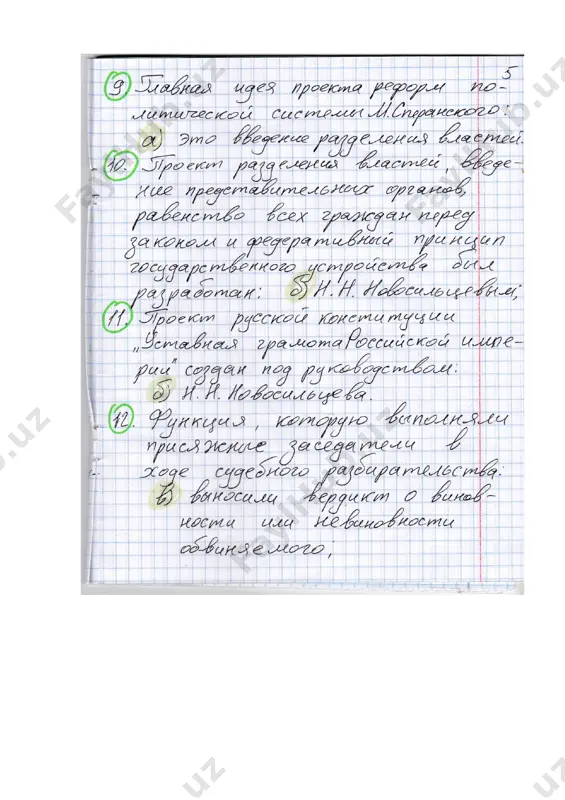 5
9. Главная идея проекта реформ по-
литической системы М. Сперанского:
а) это введение разделения властей.
10. Проект разделения властей, введе-
ние представительных органов,
равенство всех граждан перед
законом и федеративный принцип
государственного устройства был
разработан: б) Н. Н. Новосильцевым;
11. Проект русской конституции
„Уставная грамота Российской импе-
рии" создан под руководством:
б) Н. Н. Новосильцева.
12. Функция, которую выполняли
присяжные заседатели в
ходе судебного разбирательства:
в) выносили вердикт о винов-
ности или невиновности
обвиняемого;
FaylHub.uz
FaylHub.uz
FaylHub.uz
FaylHub.uz
uz
uz